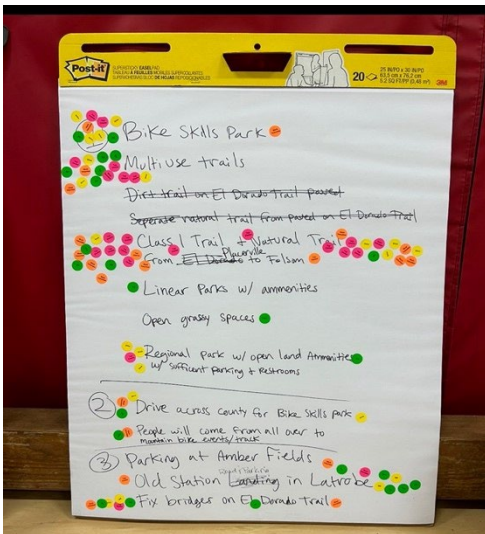 Post-it
SUPERSTICKY EASEL PAD
20
25 IN/PO x 30 IN/PO
63,5 cm x 76,2 cm
5.2 SQ FT/PP (0,48 m²)
3M
1
Bike Skills Park
Multiuse trails
Dirt trail on El Dorado Trail paved
Seperate natural trail from paved on El Dorado Trail
Class 1 Trail + Natural Trail
Placerville
from El Dorado to Folsom
Linear Parks w/ ammenities
Open grassy spaces
Regional Park w/ open land Ammenities
w/ sufficent parking + Restrooms
2 Drive across county for Bike Skills park
People will come from all over to
maintain bike events/track
3 Parking at Amber Fields
Old Station Landing in Latrobe
Fix bridges on El Dorado Trail